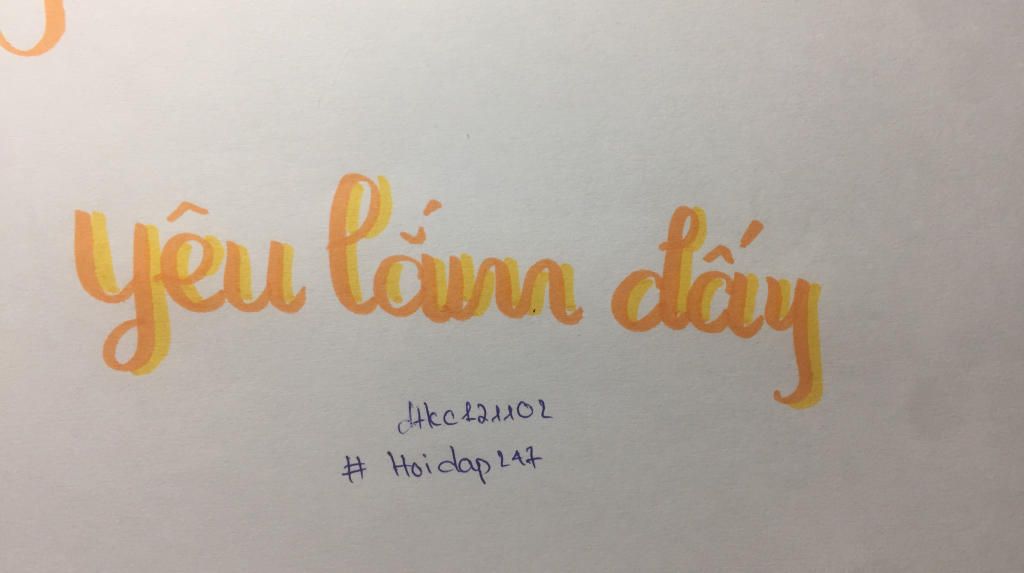 yêu lắm dấy
dtkc121102
# Hoidap247